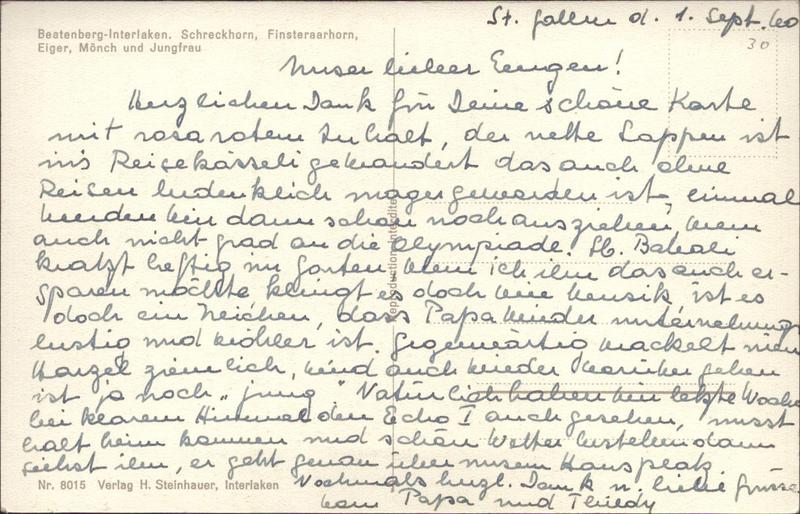 Beatenberg-Interlaken. Schreckhorn, Finsteraarhorn,
Eiger, Mönch und Jungfrau
St. Gallen d. 1. Sept. 60
30
Unser lieber Eugen!
Herzlichen Dank für Deine schöne Karte
mit rosarotem Inhalt, der nette Lappen ist
ins Reisekässeli gewandert das auch ohne
Reisen bedenklich mager geworden ist, einmal
werden wir dann schon noch ausziehen, wenn
auch nicht grad an die Olympiade. Lb.
kratzt heftig im Garten wenn ich ihm das auch er-
sparen möchte klingt es doch wie Musik, ist es
doch ein Zeichen, dass Papa wieder unternehmungs
lustig und wöhler ist. Gegenwärtig wackelt mein
ziemlich, wird auch wieder vorüber gehen
ist ja noch „jung". Natürlich haben wir letzte Woche
bei klarem Himmel den Echo I auch gesehen, musst
halt heim kommen und schön Wetter bestellen dann
siehst ihn, er geht genau über unserm Hans
Nochmals herzl. Dank u. liebe Grüsse
von Papa und Thedy
Nr. 8015 Verlag H. Steinhauer, Interlaken
Reproduction interdite